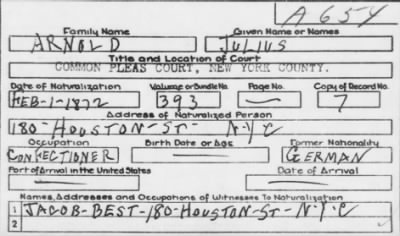 A654
Family Name Given Name or Names
ARNOLD JULIUS
Title and Location of Court
COMMON PLEAS COURT, NEW YORK COUNTY.
Date of Naturalization Volume or Bundle No. Page No. Copy of Record No.
FEB-1-1872 393 — 7
Address of Naturalized Person
180-HOUSTON-ST-N-Y-C
Occupation Birth Date or Age Former Nationality
CONFECTIONER — GERMAN
Port of Arrival in the United States Date of Arrival
— —
Names, Addresses and Occupations of Witnesses To Naturalization
1 JACOB-BEST-180-HOUSTON-ST-N-Y-C
2